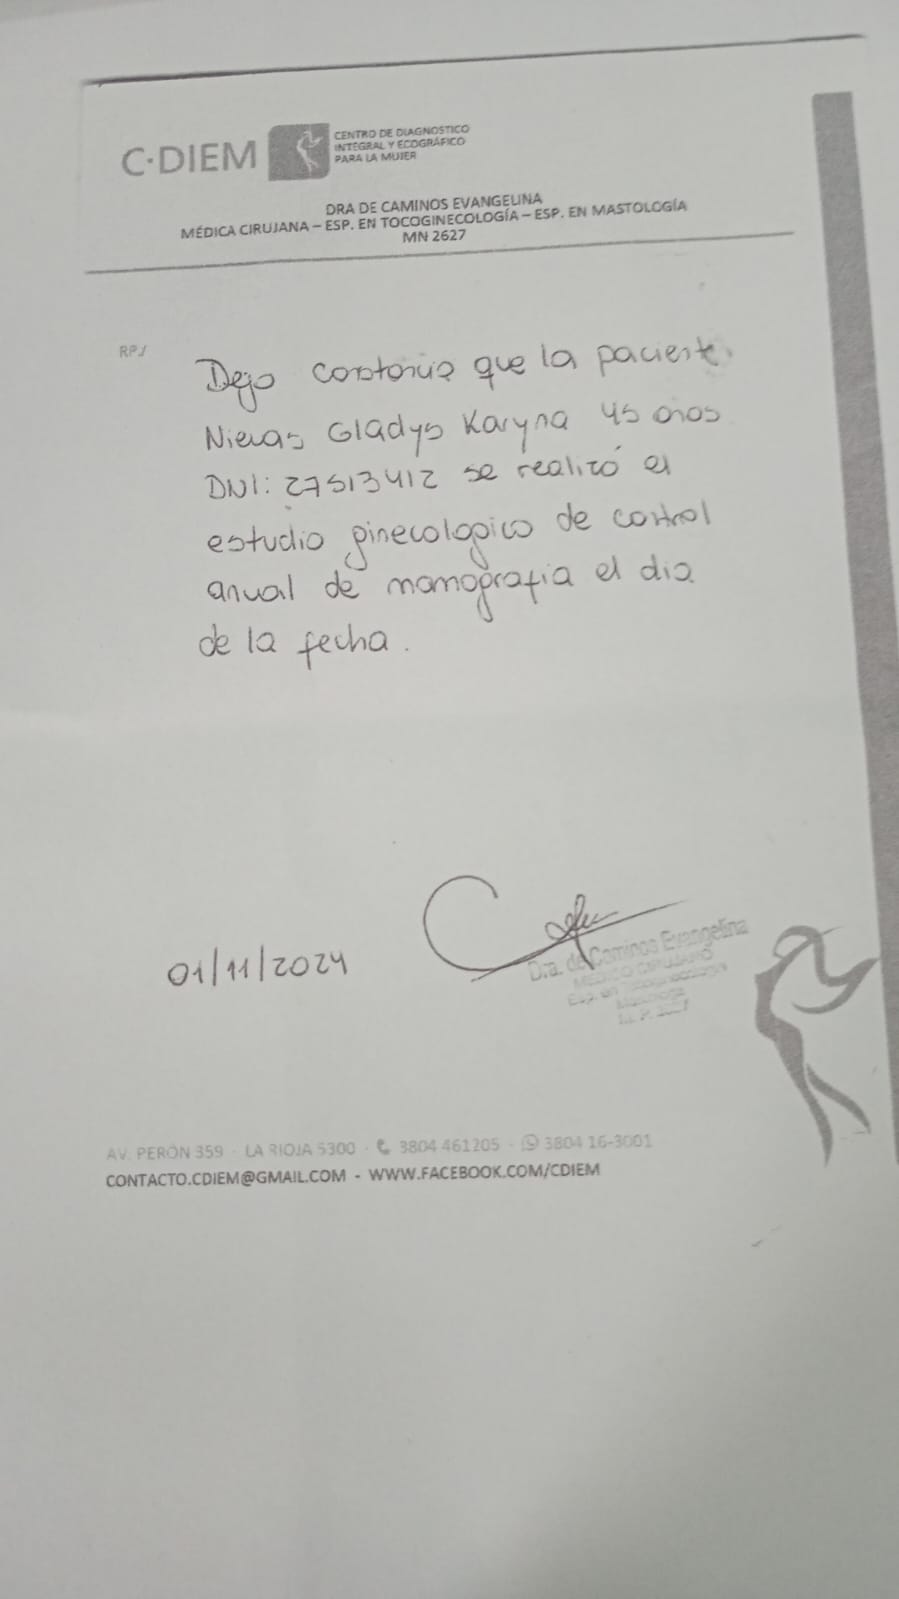 C·DIEM
CENTRO DE DIAGNOSTICO
INTEGRAL Y ECOGRÁFICO
PARA LA MUJER
DRA DE CAMINOS EVANGELINA
MÉDICA CIRUJANA – ESP. EN TOCOGINECOLOGÍA – ESP. EN MASTOLOGÍA
MN 2627
RP./
Dejo constancia que la paciente
Nievas Gladys Karyna 45 años
DNI: 27513412 se realizó el
estudio ginecologico de control
anual de mamografia el dia
de la fecha.
01/11/2024
Dra. de Caminos Evangelina
MEDICO CIRUJANO
Esp. en Tocoginecología
M. P.
AV. PERÓN 359 · LA RIOJA 5300 · 3804 461205 · 3804 16-3001
CONTACTO.CDIEM@GMAIL.COM - WWW.FACEBOOK.COM/CDIEM